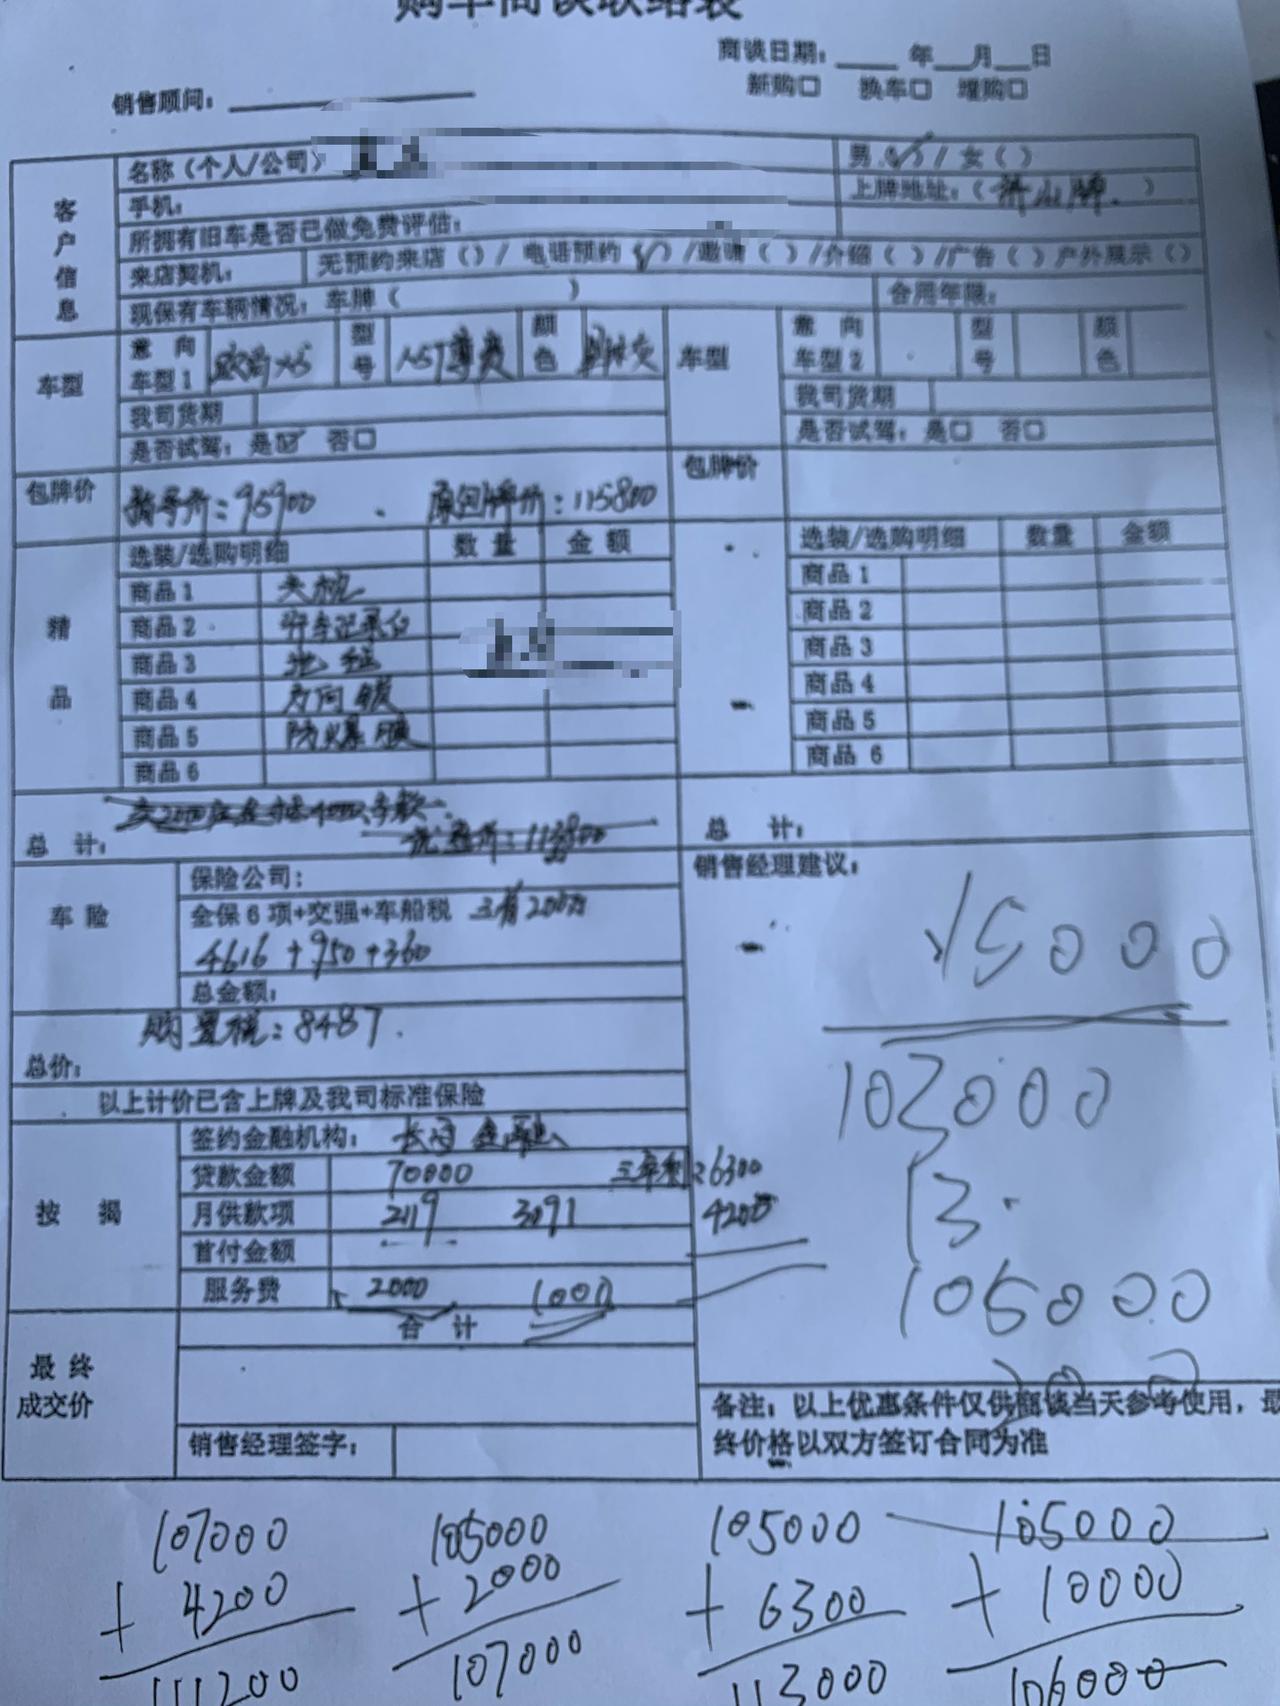 购车商谈联络表
商谈日期：____年__月__日
销售顾问：
新购□ 换车□ 增购□
客户信息
名称（个人/公司）
男（✓）/女（）
手机：
上牌地址：（ 牌 ）
所拥有旧车是否已做免费评估：
来店契机：
无预约来店（）/ 电话预约（✓）/邀请（）/介绍（）/广告（）户外展示（）
现保有车辆情况：车牌（ ）
合用年限：
车型
意向车型1
型号
1.5T尊贵
颜色
车型
意向车型2
型号
颜色
我司货期
我司货期
是否试驾：是☑ 否□
是否试驾：是□ 否□
包牌价
指导价：95900 . 原包牌价：115800
包牌价
精品
选装/选购明细 数量 金额
选装/选购明细 数量 金额
商品1 头枕
商品1
商品2 行车记录仪
商品2
商品3 地毯
商品3
商品4 方向锁
商品4
商品5 防爆膜
商品5
商品6
商品 6
总 计：
优惠价：113800
总 计：
车险
保险公司：
全保6项+交强+车船税 三者200万
4616+950+360
总金额：
购置税：8487.
总价：
以上计价已含上牌及我司标准保险
销售经理建议：
15000
102000
13.
105000
按揭
签约金融机构： 金融
贷款金额 70000 三年利：6300
月供款项 2119 3091 4200
首付金额
服务费 2000 1000
合 计
最终成交价
销售经理签字：
备注：以上优惠条件仅供商谈当天参考使用，最
终价格以双方签订合同为准
107000 105000 105000 105000
+ 4200 + 2000 + 6300 + 10000
111200 107000 113000 106000